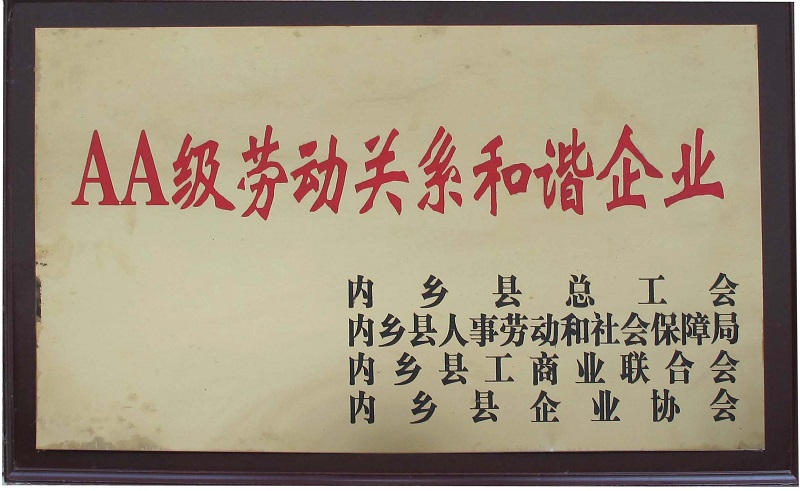 AA级劳动关系和谐企业
内乡县总工会
内乡县人事劳动和社会保障局
内乡县工商业联合会
内乡县企业协会